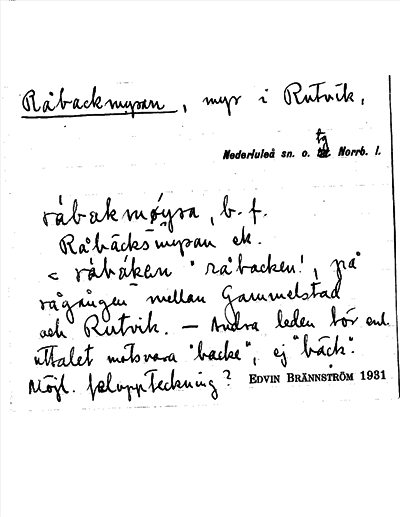 Råbackmyran, myr i Rutvik,
Nederluleå sn. o. tg Norrb. l.
råbakmøyra, b. f.
Råbäcksmyran ek.
< råbáken "råbacken", på
rågången mellan Gammelstad
och Rutvik. — Andra leden bör enl.
uttalet motsvara "backe", ej "bäck".
Möjl. feluppteckning? EDVIN BRÄNNSTRÖM 1931